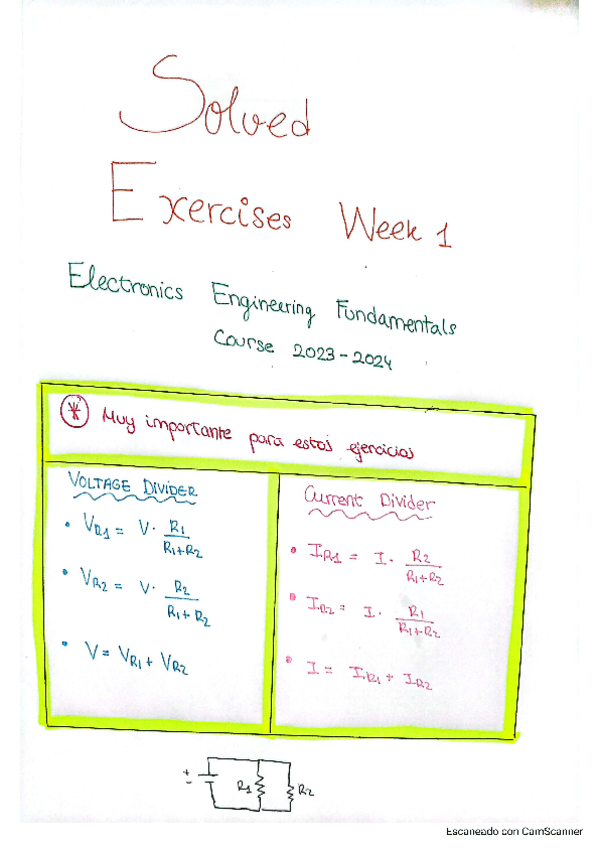 Solved
Exercises Week 1
Electronics Engineering Fundamentals
Course 2023-2024
* Muy importante para estos ejercicios
VOLTAGE DIVIDER
• VR1 = V · R1 / R1+R2
• VR2 = V · R2 / R1+R2
• V = VR1 + VR2
Current Divider
• IR1 = I · R2 / R1+R2
• IR2 = I · R1 / R1+R2
• I = IR1 + IR2
+
-
R1
R2
Escaneado con CamScanner